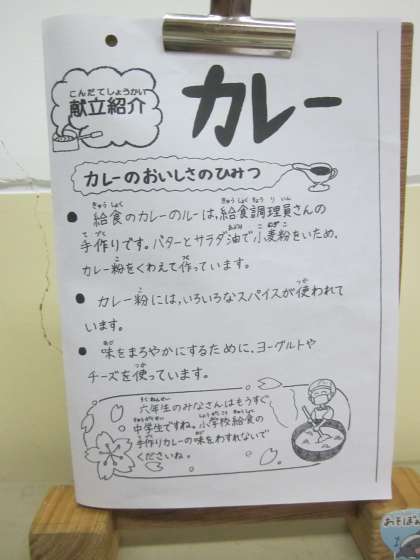 こんだてしょうかい
献立紹介
カレー
カレーのおいしさのひみつ
● 給食のカレーのルーは、給食調理員さんの
手作りです。バターとサラダ油で小麦粉をいため、
カレー粉をくわえて作っています。
● カレー粉には、いろいろなスパイスが使われて
います。
● 味をまろやかにするために、ヨーグルトや
チーズを使っています。
六年生のみなさんはもうすぐ
中学生ですね。小学校給食の
手作りカレーの味をわすれないで
くださいね。
あそぼ